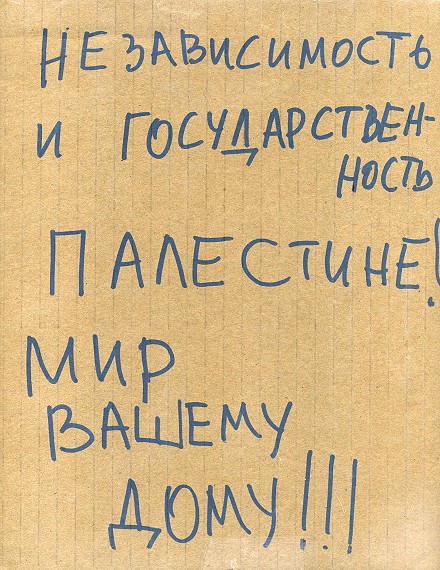 НЕЗАВИСИМОСТЬ
И ГОСУДАРСТВЕН-
НОСТЬ
ПАЛЕСТИНЕ!
МИР
ВАШЕМУ
ДОМУ!!!